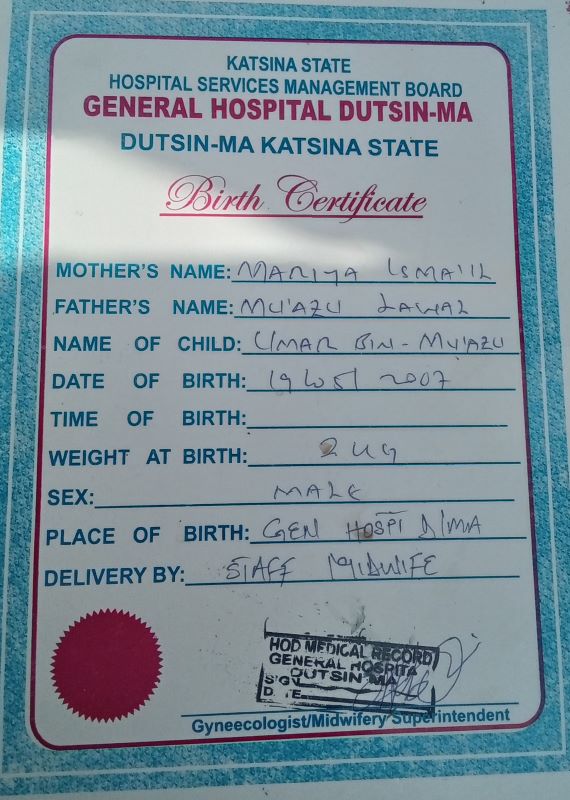 KATSINA STATE
HOSPITAL SERVICES MANAGEMENT BOARD
GENERAL HOSPITAL DUTSIN-MA
DUTSIN-MA KATSINA STATE
Birth Certificate
MOTHER'S NAME: MARIYA ISMA'IL
FATHER'S NAME: MU'AZU LAWAL
NAME OF CHILD: UMAR BIN-MU'AZU
DATE OF BIRTH: 2007
TIME OF BIRTH:
WEIGHT AT BIRTH: 2 KG
SEX: MALE
PLACE OF BIRTH: GEN HOSPI D/MA
DELIVERY BY: STAFF MIDWIFE
HOD MEDICAL RECORD
GENERAL HOSPITA
DUTSIN MA
SIGN
DATE
Gyneecologist/Midwifery Superintendent